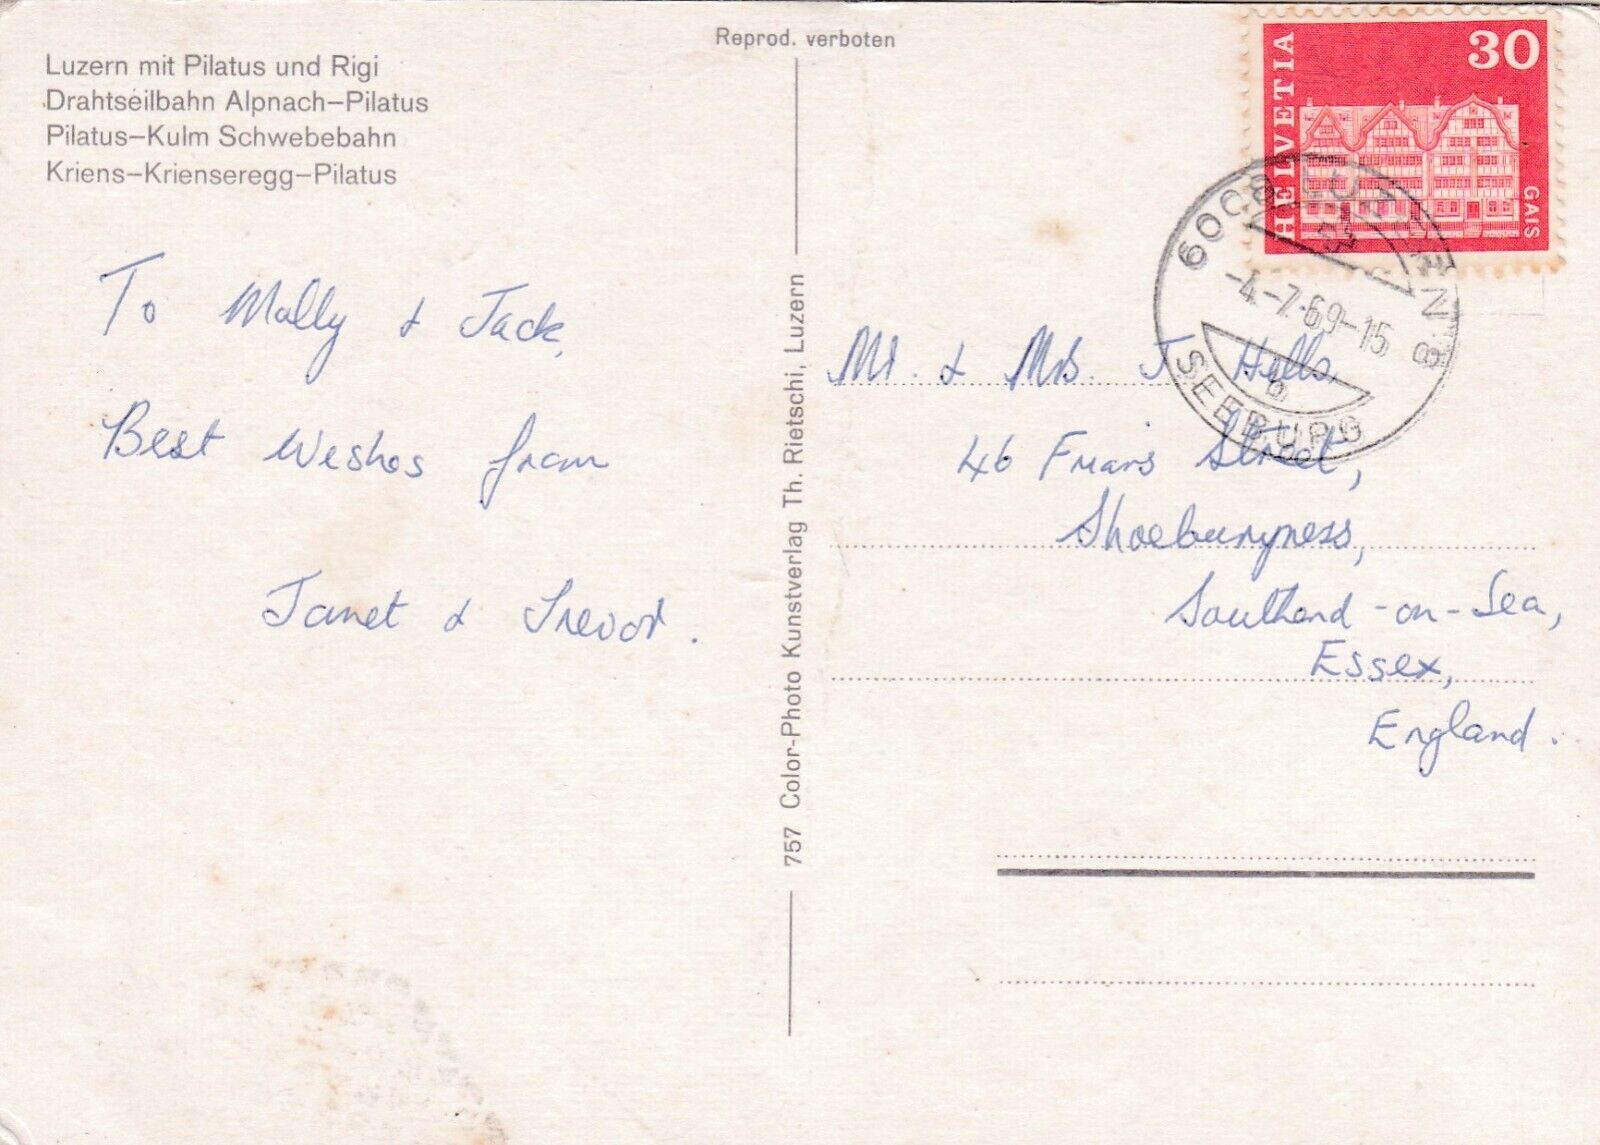 Reprod. verboten
Luzern mit Pilatus und Rigi
Drahtseilbahn Alpnach–Pilatus
Pilatus–Kulm Schwebebahn
Kriens–Krienseregg–Pilatus
To Molly & Jack,
Best Wishes from
Janet & Trevor.
757 Color-Photo Kunstverlag Th. Rietschi, Luzern
HELVETIA
30
GAIS
6006 LUZERN 8
-4.-7.69-15
b
SEEBURG
Mr. & Mrs. J Hills,
46 Friars Street,
Shoeburyness,
Southend-on-Sea,
Essex,
England.